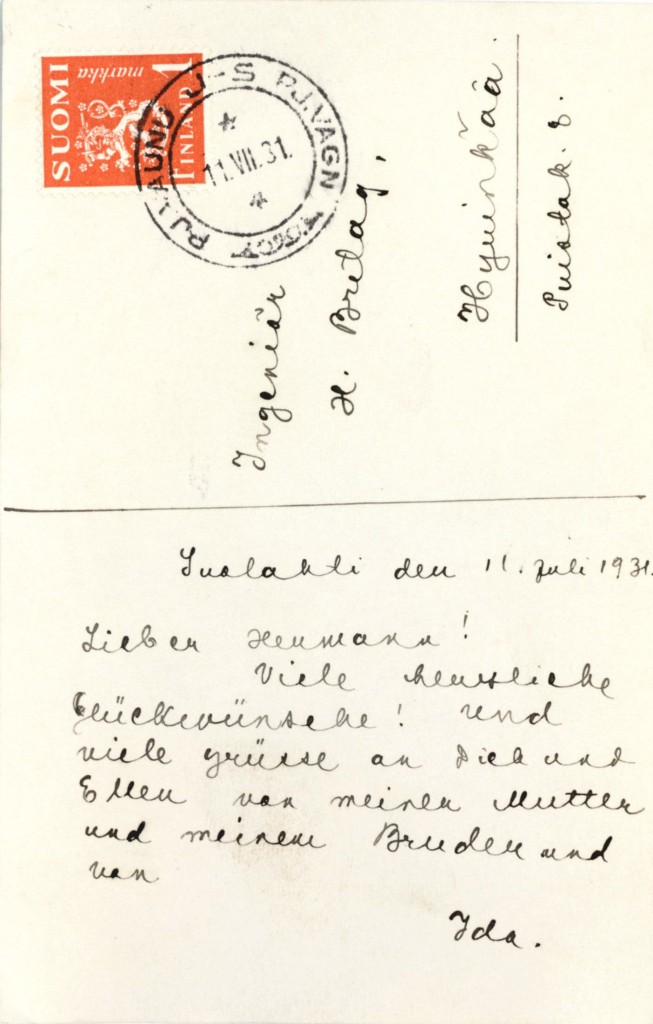 SUOMI
markka
1
FINLAND
P.J.VAGN
11.VII.31.
Ingeniör
H. Bretag,
Hyvinkää.
Puistok. 8.
Suolahti den 11. Juli 1931.
Lieber Hermann!
Viele herzliche
Glückwünsche! und
viele grüsse an Dich und
Ellen von meiner Mutter
und meinem Bruder und
von
Ida.